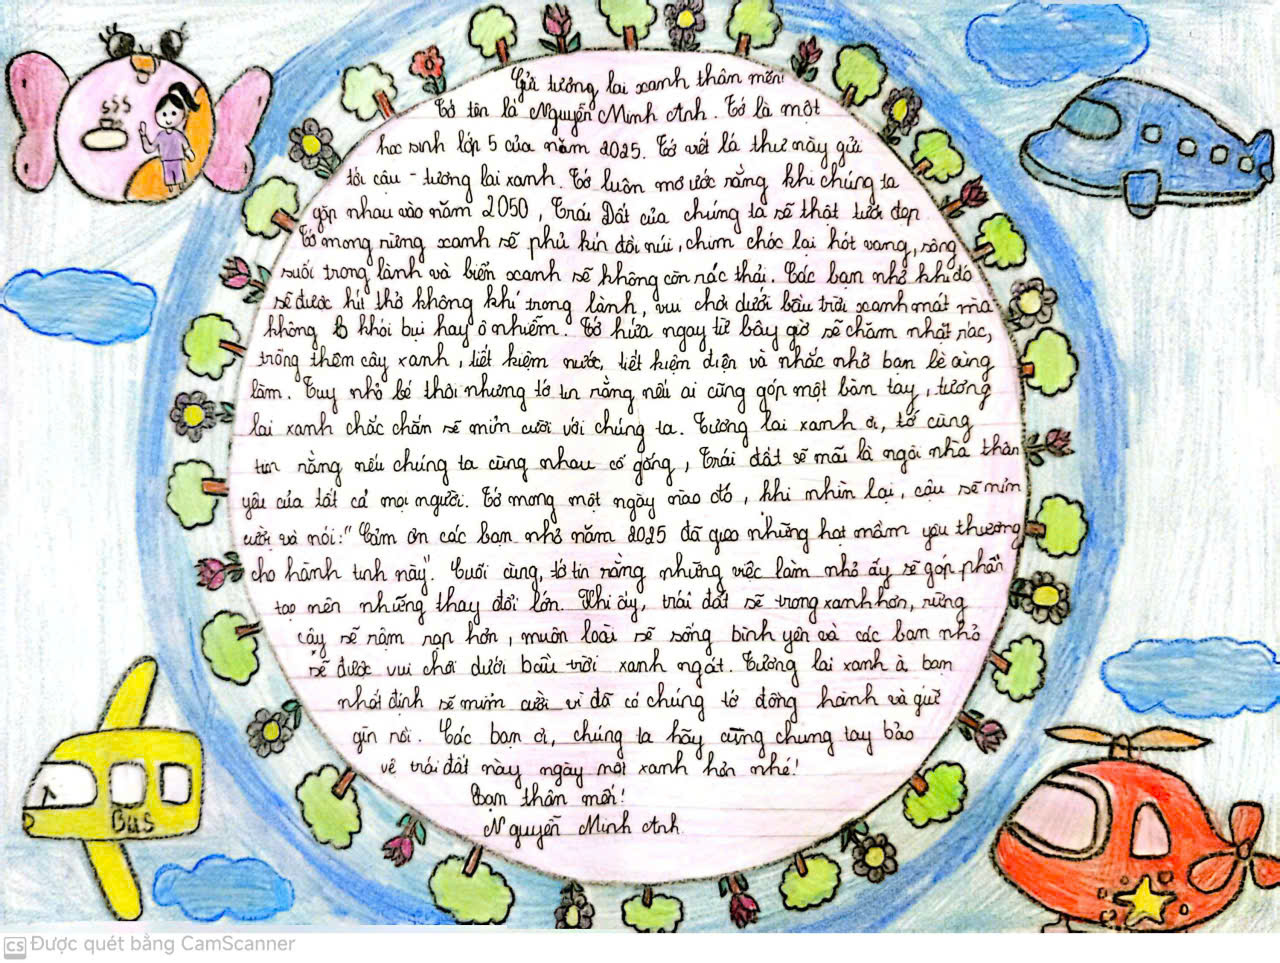 Gửi tương lai xanh thân mến!
Tớ tên là Nguyễn Minh Anh. Tớ là một
học sinh lớp 5 của năm 2025. Tớ viết lá thư này gửi
tới cậu - tương lai xanh. Tớ luôn mơ ước rằng khi chúng ta
gặp nhau vào năm 2050, Trái Đất của chúng ta sẽ thật tươi đẹp
Tớ mong rừng xanh sẽ phủ kín đồi núi, chim chóc lại hót vang, sông
suối trong lành và biển xanh sẽ không còn rác thải. Các bạn nhỏ khi đó
sẽ được hít thở không khí trong lành, vui chơi dưới bầu trời xanh mát mà
không khói bụi hay ô nhiễm. Tớ hứa ngay từ bây giờ sẽ chăm nhặt rác,
trồng thêm cây xanh, tiết kiệm nước, tiết kiệm điện và nhắc nhở bạn bè cùng
làm. Tuy nhỏ bé thôi nhưng tớ tin rằng nếu ai cũng góp một bàn tay, tương
lai xanh chắc chắn sẽ mỉm cười với chúng ta. Tương lai xanh ơi, tớ cũng
tin rằng nếu chúng ta cùng nhau cố gắng, Trái đất sẽ mãi là ngôi nhà thân
yêu của tất cả mọi người. Tớ mong một ngày nào đó, khi nhìn lại, cậu sẽ mỉm
cười và nói: "Cảm ơn các bạn nhỏ năm 2025 đã gieo những hạt mầm yêu thương
cho hành tinh này". Cuối cùng, tớ tin rằng những việc làm nhỏ ấy sẽ góp phần
tạo nên những thay đổi lớn. Khi ấy, trái đất sẽ trong xanh hơn, rừng
cây sẽ rậm rạp hơn, muôn loài sẽ sống bình yên và các bạn nhỏ
sẽ được vui chơi dưới bầu trời xanh ngát. Tương lai xanh à, bạn
nhất định sẽ mỉm cười vì đã có chúng tớ đồng hành và giữ
gìn rồi. Các bạn ơi, chúng ta hãy cùng chung tay bảo
vệ trái đất này ngày một xanh hơn nhé!
Bạn thân mến!
Nguyễn Minh Anh
Bus
CS Được quét bằng CamScanner